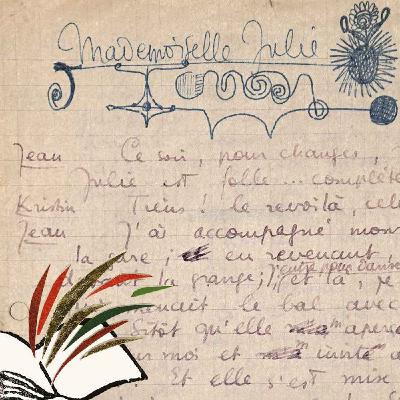 Mademoiselle Julie
Jean Ce soir, pour changer,
Julie est folle ... complète
Kristin Tiens! le revoilà, cel
Jean J'ai accompagné mon
la gare; en revenant,
la grange, j'entre pour danse
et là, je
menait le bal avec
Sitôt qu'elle m'aper
moi et m'invite a
Et elle s'est mise